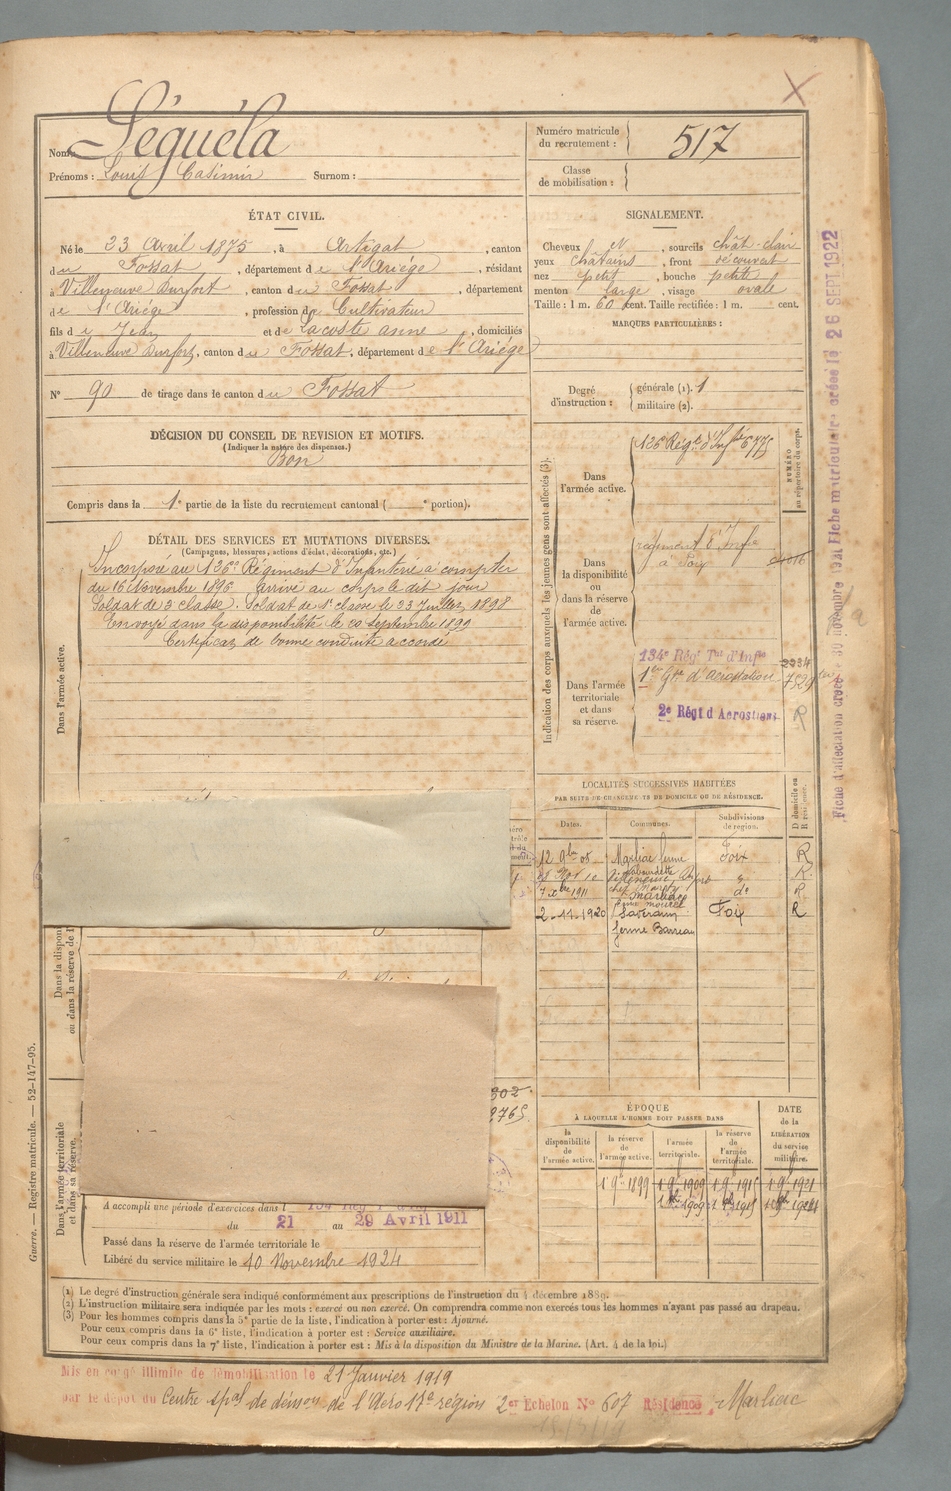 Nom : Séguéla
Prénoms : Louis Casimir Surnom :
Numéro matricule du recrutement : 517
Classe de mobilisation :
ÉTAT CIVIL.
Né le 23 Avril 1875, à Artigat, canton
du Fossat, département de l'Ariége, résidant
à Villeneuve Durfort, canton du Fossat, département
de l'Ariége, profession de Cultivateur
fils de Jean et de Lacoste anne, domiciliés
à Villeneuve Durfort, canton du Fossat, département de l'Ariége
N° 90 de tirage dans le canton du Fossat
DÉCISION DU CONSEIL DE REVISION ET MOTIFS.
(Indiquer la nature des dispenses.)
Bon
Compris dans la 1e partie de la liste du recrutement cantonal ( e portion).
DÉTAIL DES SERVICES ET MUTATIONS DIVERSES.
(Campagnes, blessures, actions d'éclat, décorations, etc.)
Dans l'armée active.
Incorporé au 126e Régiment d'Infanterie à compter
du 16 Novembre 1896 arrivé au corps le dit jour
Soldat de 2e classe. Soldat de 1e classe le 23 Juillet 1898
Envoyé dans la disponibilité le 20 septembre 1899
Certificat de bonne conduite accordé
Dans la dispon
ou dans la réserve de l
Dans l'armée territoriale
et dans sa réserve.
302
2765
A accompli une période d'exercices dans l
du 21 au 29 Avril 1911
Passé dans la réserve de l'armée territoriale le
Libéré du service militaire le 10 Novembre 1924
SIGNALEMENT.
Cheveux et, sourcils chât-clair
yeux châtains, front découvert
nez petit, bouche petite
menton large, visage ovale
Taille : 1 m. 60 cent. Taille rectifiée : 1 m. cent.
MARQUES PARTICULIÈRES :
Degré d'instruction :
générale (1). 1
militaire (2).
Indication des corps auxquels les jeunes gens sont affectés (3).
NUMÉRO au répertoire du corps.
Dans l'armée active.
126 Régt d'Infie 6775
Dans la disponibilité ou dans la réserve de l'armée active.
régiment d'Infie
à Foix
Dans l'armée territoriale et dans sa réserve.
134e Régt Tal d'Infie 2234
1er Gpe d'aérostation
2e Régt d'Aerostiers R
LOCALITÉS SUCCESSIVES HABITÉES
PAR SUITE DE CHANGEMENTS DE DOMICILE OU DE RÉSIDENCE.
Dates. Communes. Subdivisions de région. D domicile ou R résidence.
12 9bre 05 Marliac ferme Foix R
Villeneuve R
7 Xbre 1911 Marliac do R
2-11-1920 Saverdun Foix R
ferme Barreau
ÉPOQUE
À LAQUELLE L'HOMME DOIT PASSER DANS
la disponibilité de l'armée active. la réserve de l'armée active. l'armée territoriale. la réserve de l'armée territoriale.
DATE de la LIBÉRATION du service militaire.
1 9bre 1899 1 9bre 1909 1 9bre 1915 1 9bre 1921
Guerre. — Registre matricule. — 52-147-95.
(1) Le degré d'instruction générale sera indiqué conformément aux prescriptions de l'instruction du 4 décembre 1889.
(2) L'instruction militaire sera indiquée par les mots : exercé ou non exercé. On comprendra comme non exercés tous les hommes n'ayant pas passé au drapeau.
(3) Pour les hommes compris dans la 5e partie de la liste, l'indication à porter est : Ajourné.
Pour ceux compris dans la 6e liste, l'indication à porter est : Service auxiliaire.
Pour ceux compris dans la 7e liste, l'indication à porter est : Mis à la disposition du Ministre de la Marine. (Art. 4 de la loi.)
Mis en congé illimité de démobilisation le 21 Janvier 1919
par le dépôt du Centre spal de démon de l'Aéro 17e région 2er Echelon No 607 Résidence Marliac
Fiche d'affectation créée 30 novembre 1931 Fiche matriculaire créée le 26 SEPT 1922